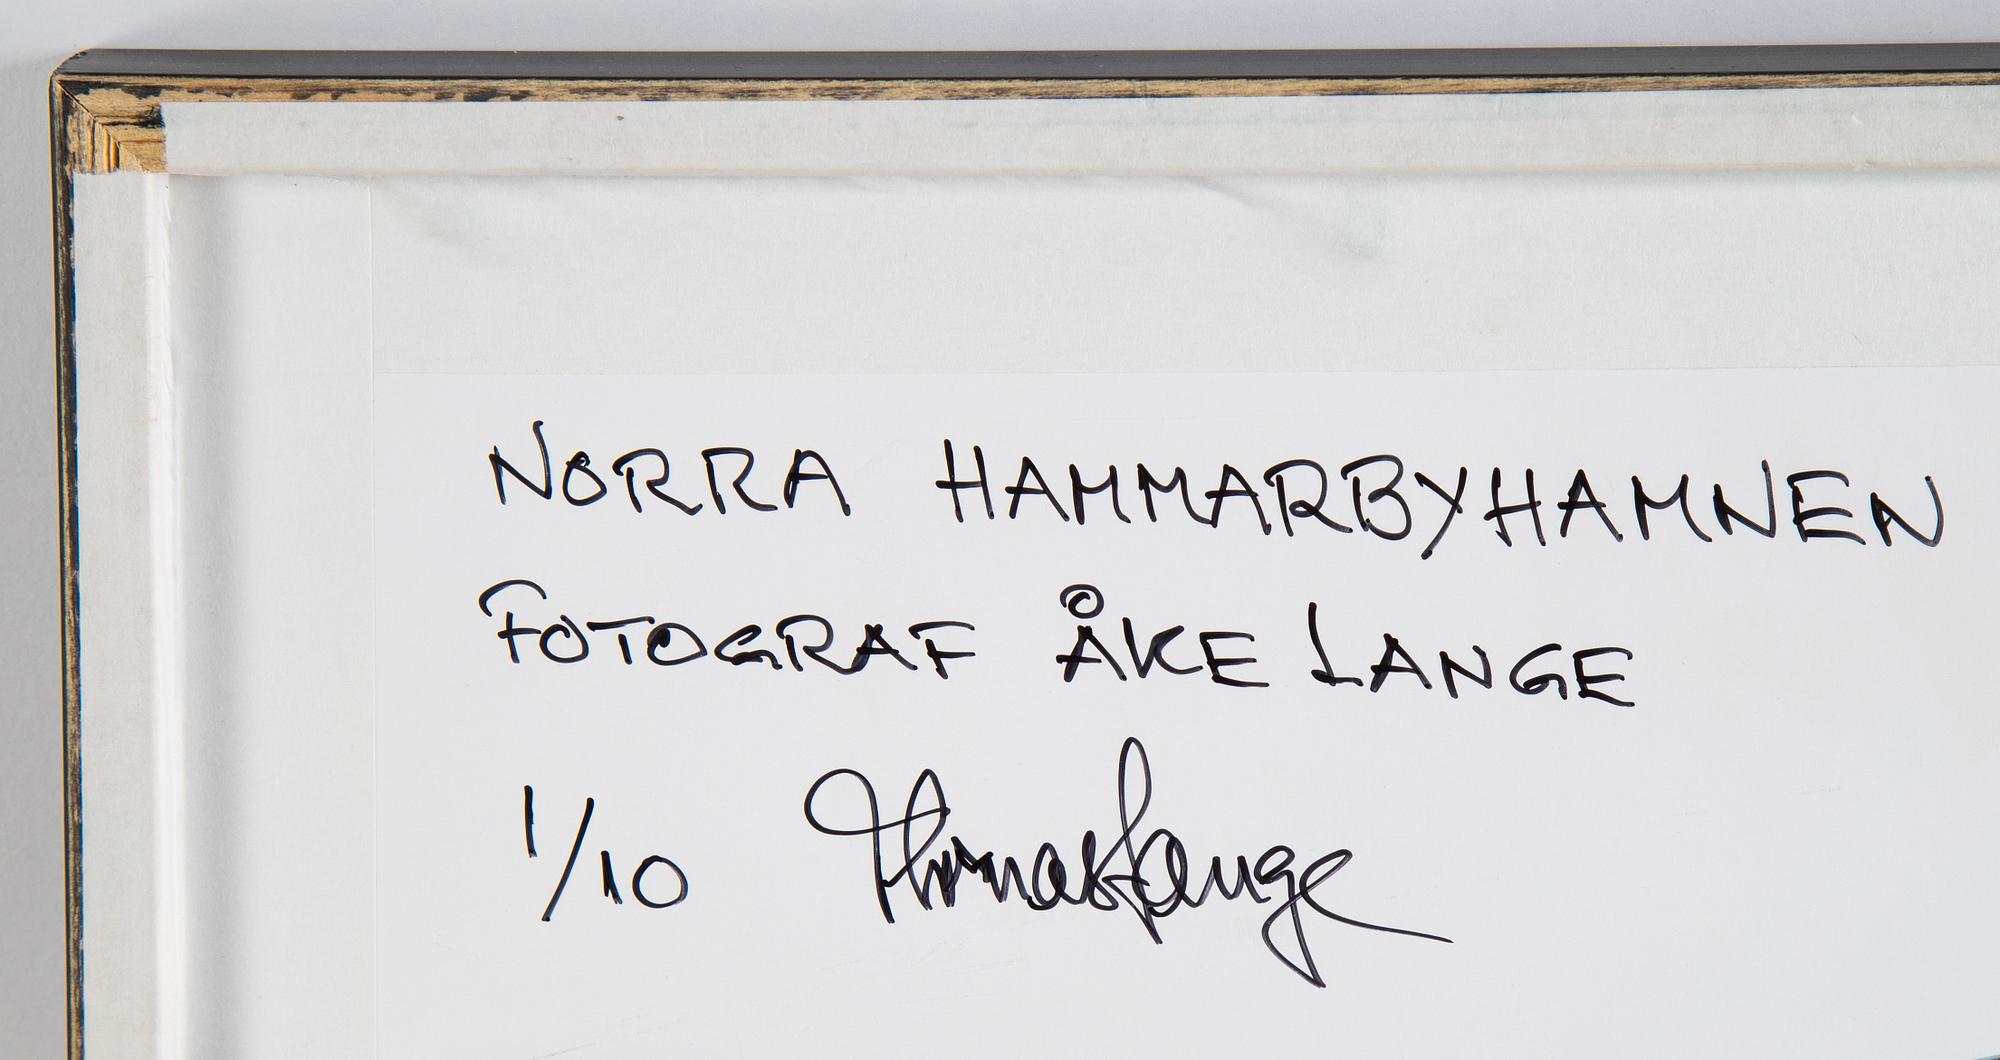 NORRA HAMMARBYHAMNEN
FOTOGRAF ÅKE LANGE
1/10 Thomas Lange